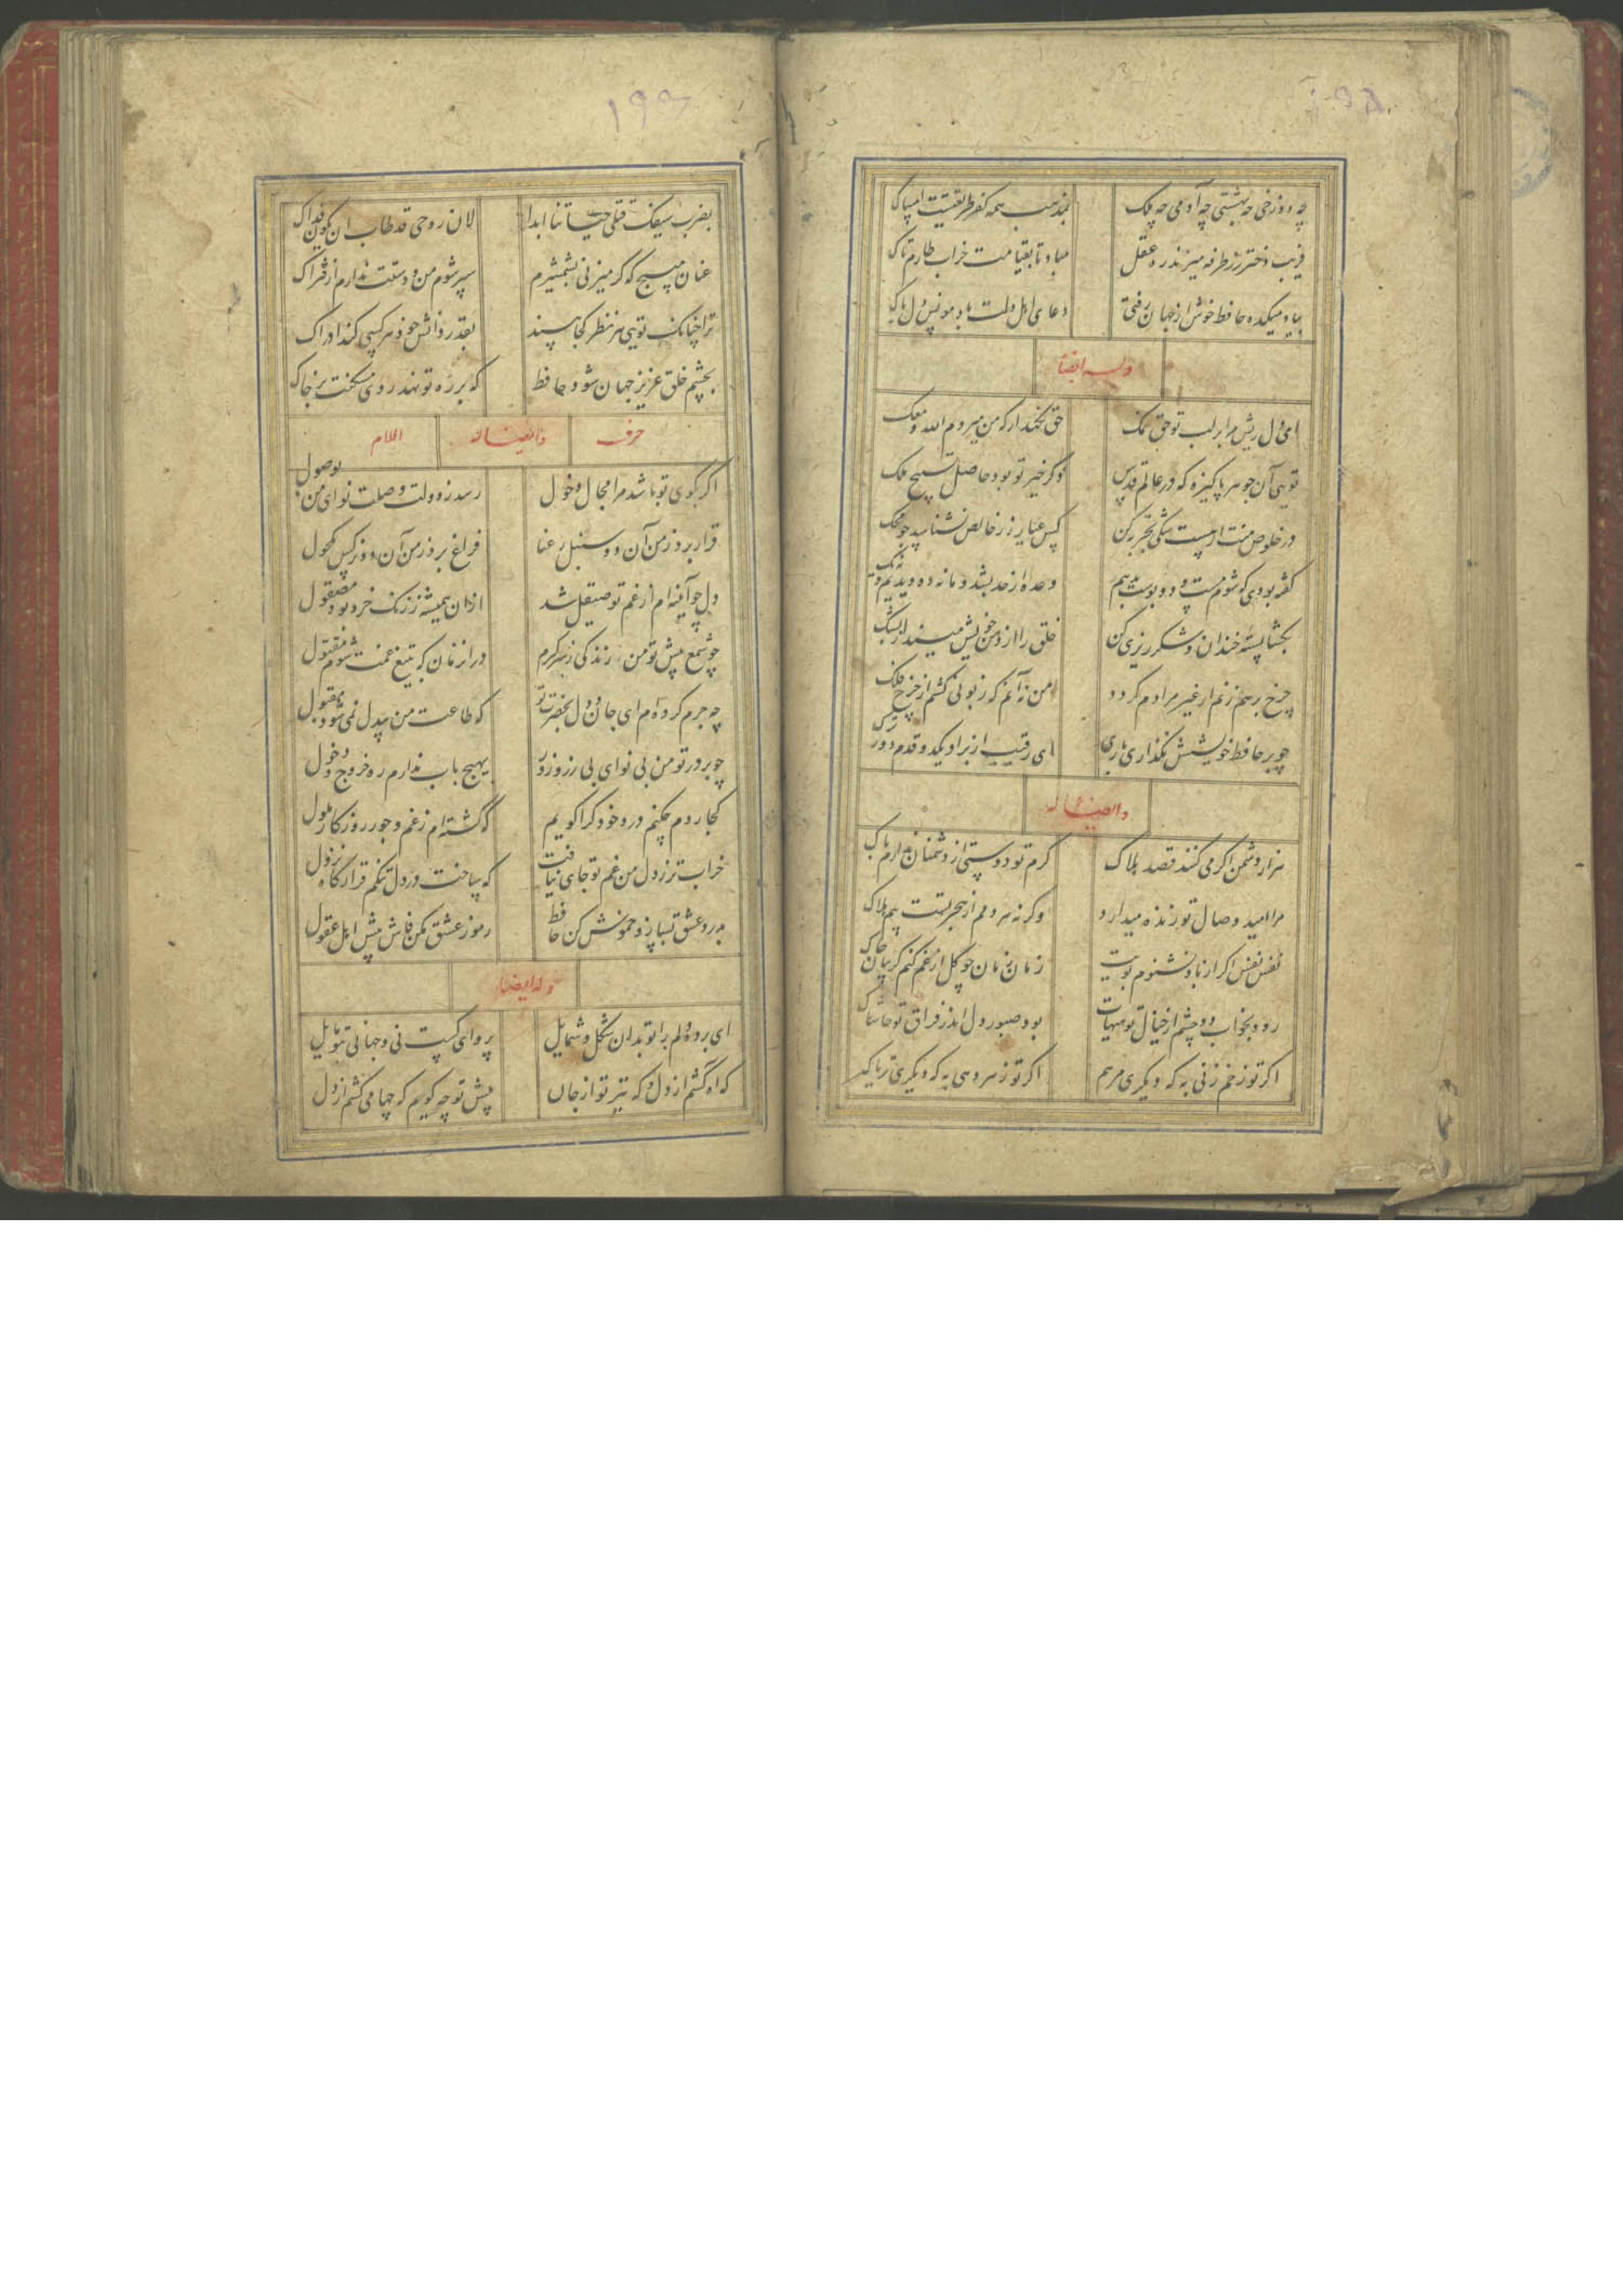 چه دوزخی چه بهشتی چه آدمی چه ملک بمذهب همه کفر طریقتست امساک
فریب دختر رز طرفه میزند ره عقل مباد تا بقیامت خراب طارم تاک
براه میکده حافظ خوش از جهان رفتی دعای اهل دلت باد مونس دل پاک
وله ایضا
ای دل ریش مرا بر لب تو حق نمک حق نگهدار که من میروم الله معک
تویی آن جوهر پاکیزه که در عالم قدس ذکر خیر تو بود حاصل تسبیح ملک
در خلوص منت ار هست شکی تجربه کن کس عیار زر خالص نشناسد چو محک
گفته بودی که شوم مست و دو بوست بدهم وعده از حد بشد و ما نه دو دیدیم و نه یک
بگشا پسته خندان و شکر ریزی کن خلق را از دهن خویش مینداز بشک
چرخ برهم زنم ار غیر مرادم گردد من نه آنم که زبونی کشم از چرخ فلک
چو بر حافظ خویشش نگذاری باری ای رقیب از بر او یکدو قدم دورترک
و ایضا له
هزار دشمن اگر می کنند قصد هلاک گرم تو دوستی از دشمنان ندارم باک
مرا امید وصال تو زنده میدارد وگرنه هر دمم از هجر تست بیم هلاک
نفس نفس اگر از باد نشنوم بویت زمان زمان چو گل از غم کنم گریبان چاک
رود بخواب دو چشم از خیال تو هیهات بود صبور دل اندر فراق تو حاشاک
اگر تو زخم زنی به که دیگری مرهم اگر تو زهر دهی به که دیگری تریاک
بضرب سیفک قتلی حیاتنا ابدا لان روحی قد طاب ان یکون فداک
عنان مپیچ که گر میزنی بشمشیرم سپر شوم من و دستت ندارم از فتراک
ترا چنانک تویی هر نظر کجا بیند بقدر دانش خود هر کسی کند ادراک
بچشم خلق عزیز جهان شود حافظ که بر ره تو نهد روی مسکنت بر خاک
حرف وایضا له اللام
اگر بکوی تو باشد مرا مجال دخول رسد ز دولت وصلت نوای من بوصول
قرار برد ز من آن دو سنبل رعنا فراغ برد ز من آن دو نرگس مکحول
دل چو آینه ام از غم تو صیقل شد ازان همیشه ز زنگ خرد بود مصقول
چو شمع پیش تو من زندگی ز سر گیرم در آن زمان که بتیغ غمت شوم مقتول
چه جرم کرده ام ای جان و دل بحضرت تو که طاعت من بیدل نمی شود مقبول
چو بر در تو من بی نوای بی زر و زور بهیچ باب ندارم ره خروج و دخول
کجا روم چکنم درد خود کرا گویم که گشته ام ز غم و جور روزگار ملول
خراب تر ز دل من غم تو جای نیافت که ساخت در دل تنگم قرارگاه نزول
بدرد عشق بساز و خموش کن حافظ رموز عشق مکن فاش پیش اهل عقول
وله ایضا
ای برده دلم را تو بدان شکل و شمایل پروای کست نی و جهانی بتو مایل
که آه کشم از دل و که تیر تو از جان پیش تو چه گویم که چها می کشم از دل